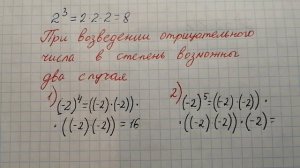 2³ = 2·2·2 = 8
При возведении отрицательного
числа в степень возможны
два случая
1) (-2)⁴ = ((-2)·(-2))·
·((-2)(-2)) = 16
2) (-2)⁵ = ((-2)(-2))·
·((-2)(-2))·(-2) =